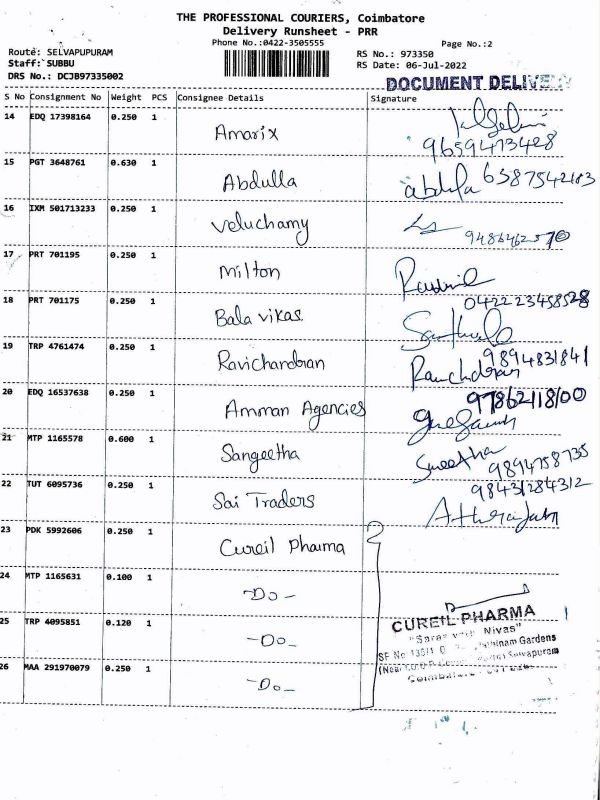 THE PROFESSIONAL COURIERS, Coimbatore
Delivery Runsheet - PRR
Phone No.:0422-3505555
Page No.:2
Route: SELVAPUPURAM
RS No.: 973350
Staff: SUBBU
RS Date: 06-Jul-2022
DRS No.: DCJB97335002
DOCUMENT DELIVERY
S No Consignment No Weight PCS Consignee Details Signature
14 EDQ 17398164 0.250 1 Amarix
9659473428
15 PGT 3648761 0.630 1 Abdulla abdula 6387542183
16 IXM 501713233 0.250 1 Veluchamy
9486462570
17 PRT 701195 0.250 1 Milton
18 PRT 701175 0.250 1 Bala vikas 0422 23458528
19 TRP 4761474 0.250 1 Ravichandran 9894831841
20 EDQ 16537638 0.250 1 Amman Agencies 9786211800
21 MTP 1165578 0.600 1 Sangeetha
9894758735
22 TUT 6095736 0.250 1 Sai Traders 98431284312
23 PDK 5992606 0.250 1 Cureil Pharma
24 MTP 1165631 0.100 1 -Do-
25 TRP 4095851 0.120 1 -Do-
CUREIL PHARMA
Nivas"
SF No Gardens
Selvapuram
26 MAA 291970079 0.250 1 -Do-